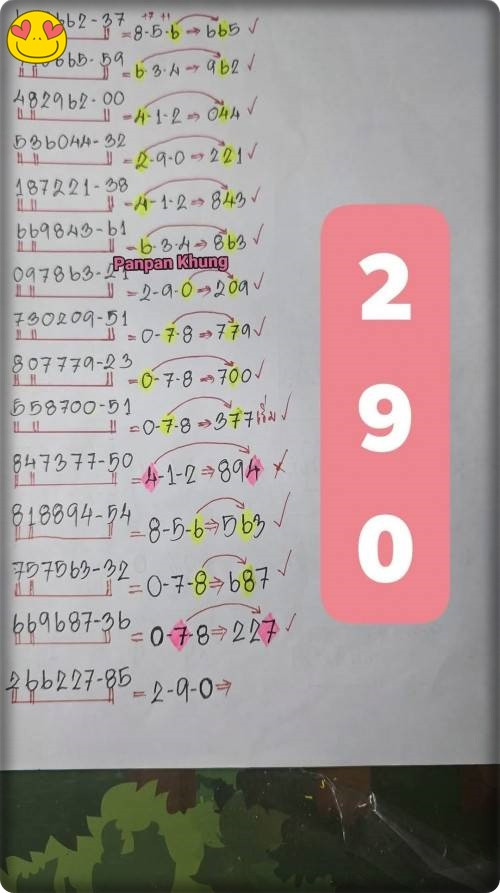 662-37 = 8-5-6 ⇒ 665 ✓
+7 +1
665-59 = 6-3-4 ⇒ 962 ✓
482962-00 = 4-1-2 ⇒ 044 ✓
536044-32 = 2-9-0 ⇒ 221 ✓
187221-38 = 4-1-2 ⇒ 843 ✓
669843-61 = 6-3-4 ⇒ 863 ✓
Panpan Khung
097863-21 = 2-9-0 ⇒ 209 ✓
730209-51 = 0-7-8 ⇒ 779 ✓
807779-23 = 0-7-8 ⇒ 700 ✓
558700-51 = 0-7-8 ⇒ 377 ✓
847377-50 = 4-1-2 ⇒ 894 ✗
818894-54 = 8-5-6 ⇒ 563 ✓
757563-32 = 0-7-8 ⇒ 687 ✓
669687-36 = 0-7-8 ⇒ 227 ✓
266227-85 = 2-9-0 ⇒
2
9
0